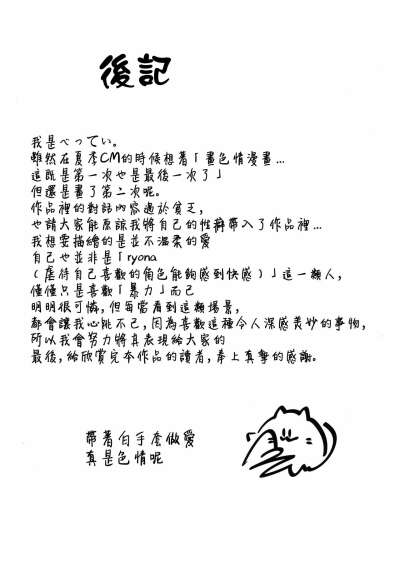 後記
我是べってぃ。
雖然在夏季CM的時候想著「畫色情漫畫...
這既是第一次也是最後一次了」
但還是畫了第二次呢。
作品裡的對話內容過於貧乏,
也請大家能原諒我將自己的性癖帶入了作品裡...
我想要描繪的是並不溫柔的愛
自己也並非是「ryona
(虐待自己喜歡的角色能夠感到快感)」這一類人,
僅僅只是喜歡「暴力」而已
明明很可憐,但每當看到這類場景,
都會讓我心跳不已,因為喜歡這種令人深感美妙的事物,
所以我會努力將其表現給大家的
最後,給欣賞完本作品的讀者,奉上真摯的感謝。
帶著白手套做愛
真是色情呢